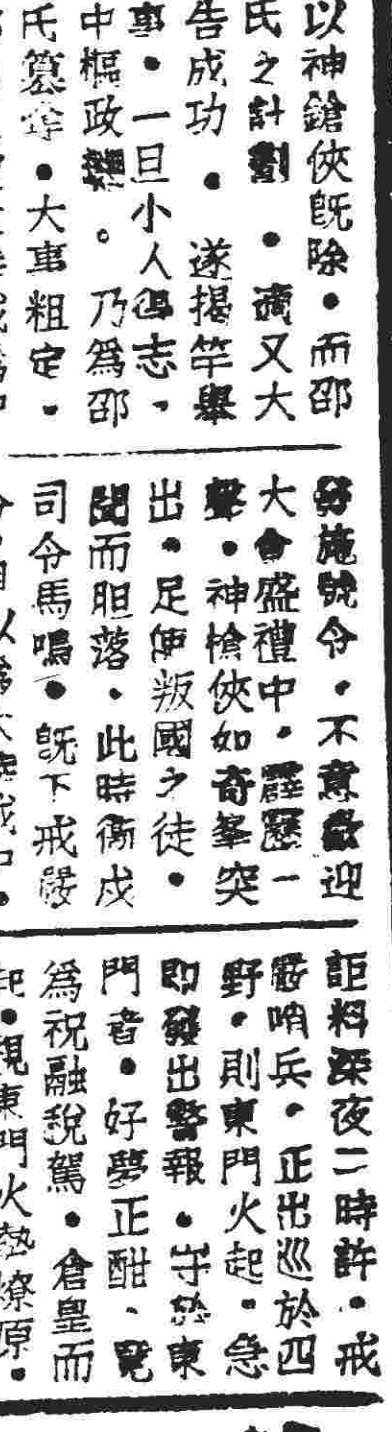 以神鎗俠旣除•而邵
氏之計劃•　又大
告成功•遂揭竿舉
事•一旦小人得志•
中樞政　。乃爲邵
氏篡奪•大事粗定•
發施號令•不意歡迎
大會盛禮中•霹靂一
聲•神槍俠如奇峯突
出•足使叛國之徒•
聞而胆落•此時衛戍
司令馬鳴•旣下戒嚴
詎料深夜二時許•戒
嚴哨兵•正出巡於四
野•則東門火起•急
即發出警報•守於東
門者•好夢正酣、竟
爲祝融稅駕•倉皇而
起•視東門火熱燎原•